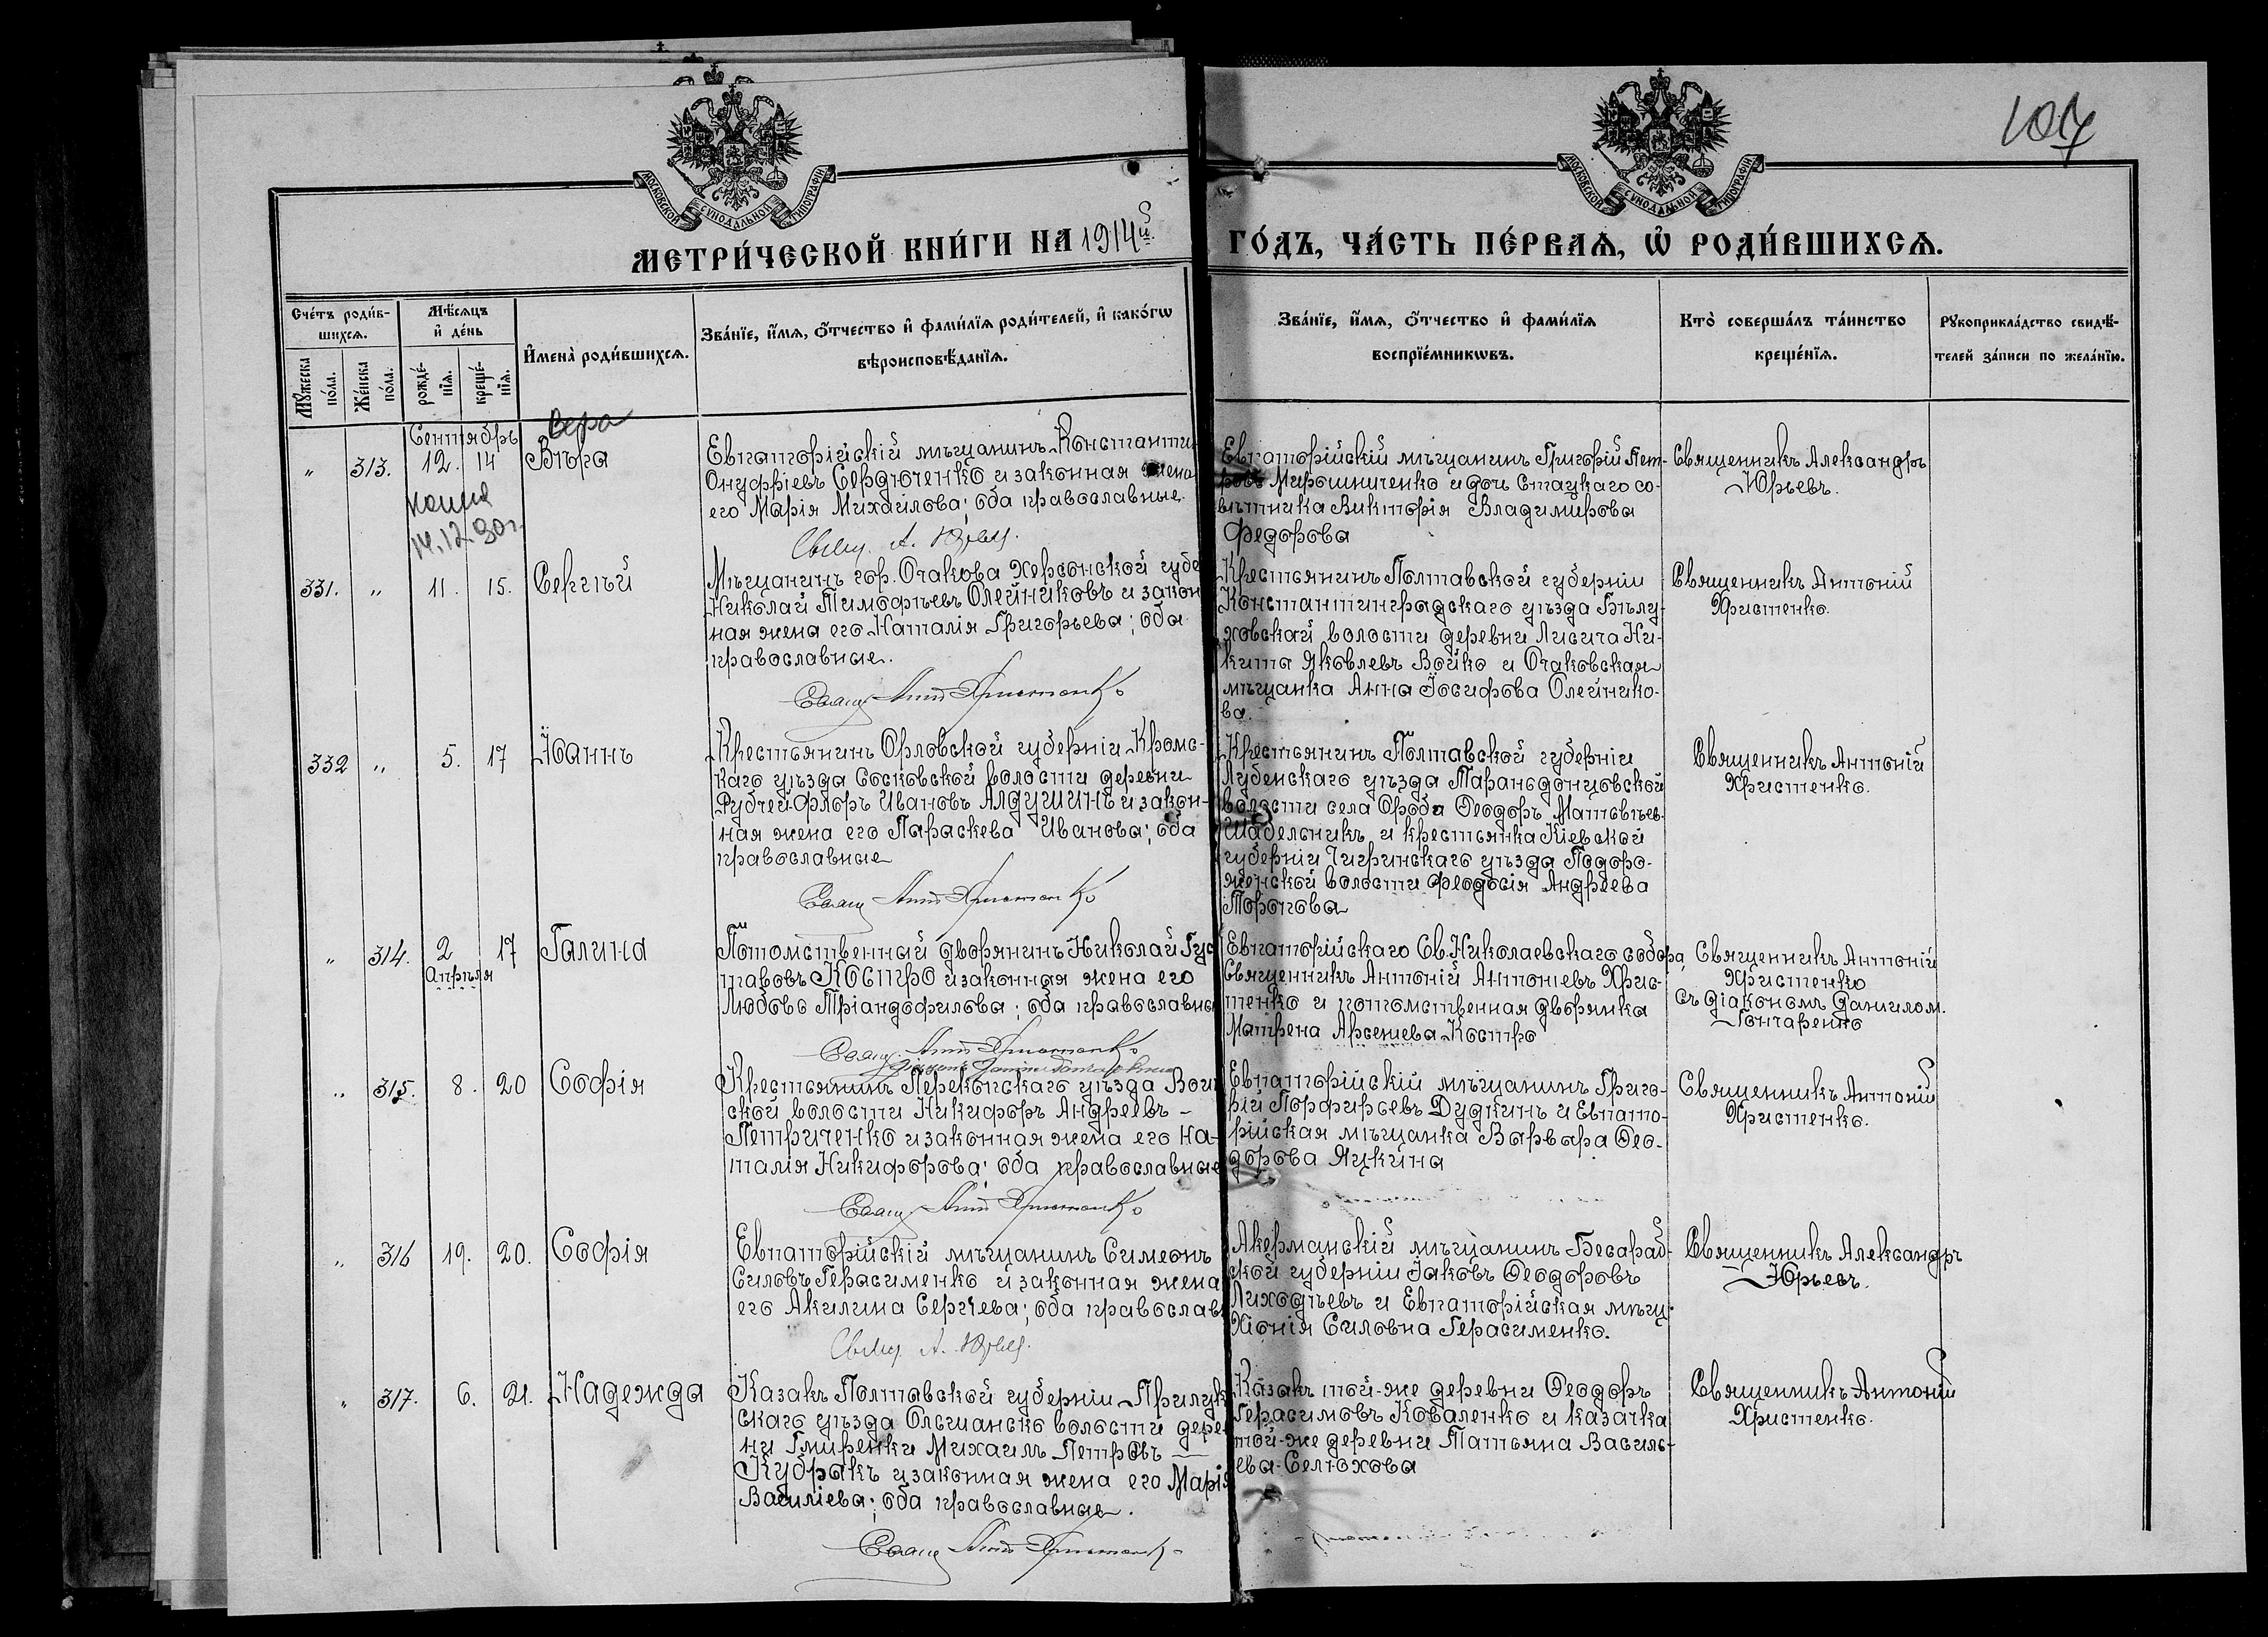 107
МОСКОВСКОЙ СѴНОДАЛЬНОЙ ТИПОГРАФІИ
МОСКОВСКОЙ СѴНОДАЛЬНОЙ ТИПОГРАФІИ
МЕТРИ́ЧЕСКОЙ КНИ́ГИ НА 1914й.
ГО́ДЪ, ЧА́СТЬ ПЕ́РВАѦ, Ѡ҆ РОДИ́ВШИХСѦ.
Сче́тъ роди́в-
шихсѧ.
Мꙋ́жеска
по́ла.
Же́нска
по́ла.
Мѣ́сѧцъ
и҆ де́нь
рожде́-
нїѧ.
креще́-
нїѧ.
И҆мена̀ роди́вшихсѧ.
Зва́нїе, и҆́мѧ, ѻ҆́тчество и҆ фами́лїѧ роди́телей, и҆ како́гѡ
вѣроисповѣ́данїѧ.
Зва́нїе, и҆́мѧ, ѻ҆́тчество и҆ фами́лїѧ
воспрїе́мникѡвъ.
Кто̀ соверша́лъ та́инство
креще́нїѧ.
Рꙋкоприкла́дство свидѣ́-
телей за́писи по жела́нїю.
Сентябрь
Вера
" 313. 12. 14 Вѣра
копия
14.12.90г.
Евпаторійскій мѣщанинъ Константи
Онуфріевъ Сердюченко и законная жена
его Марія Михайлова; оба православные.
Свящ. А. Юрьевъ.
Евпаторійскій мѣщанинъ Григорій Пет-
ровъ Мирошниченко и дочь Статскаго со-
вѣтника Викторія Владимірова
Федорова
Священникъ Александръ
Юрьевъ.
331. " 11. 15. Сергѣй
Мѣщанинъ гор. Очакова Херсонской губе
Николай Тимофѣевъ Олейниковъ и закон
ная жена его Наталія Григорьева; оба
православные.
Свящ. Анто Христенко
Крестьянинъ Полтавской губерніи
Константинградскаго уѣзда Бѣлу-
ховской волости деревни Лисича Ни-
кита Яковлевъ Бойко и Очаковская
мѣщанка Анна Іосифова Олейнико-
ва.
Священникъ Антоній
Христенко.
332 " 5. 17 Іоаннъ
Крестьянинъ Орловской губерніи Кромс-
каго уѣзда Сосковской волости деревни
Рубчей Флоръ Ивановъ Алдушинъ и закон-
ная жена его Параскева Иванова; оба
православные
Свящ Анто Христенко
Крестьянинъ Полтавской губерніи
Лубенскаго уѣзда Тарандонцовской
волости села Ороба Ѳеодоръ Матвѣев.
Шабельникъ и крестьянка Кіевской
губерніи Чигринскаго уѣзда Подоро-
женской волости Феодосія Андреева
Торопова
Священникъ Антоній
Христенко.
" 314. 2 17 Галина
Апрѣля
Потомственный дворянинъ Николай Гус
тавовъ Костро и законная жена его
Любовь Тріандофилова; оба православны
Свящ. Анто Христенко
Евпаторійскаго Св. Николаевскаго собора
Священникъ Антоній Антоніевъ Хрис-
тенко и потомственная дворянка
Матрена Арсениева Костро
Священникъ Антоній
Христенко
съ діакономъ Даниілом.
Гончаренко
" 315. 8. 20 Софія
Крестьянинъ Перекопскаго уѣзда Воин
ской волости Никифоръ Андреевъ -
Петриченко и законная жена его На-
талія Никифорова; оба православные
Свящ Анто Христенко
Евпаторійскій мѣщанинъ Григо-
рій Порфирьевъ Дудкинъ и Евпато-
рійская мѣщанка Варвара Ѳео-
дорова Яцкина
Священникъ Антоній
Христенко.
" 316 19. 20. Софія
Евпаторійскій мѣщанинъ Симеонъ
Силовъ Герасименко и законная жена
его Акилина Сергѣева; оба православн
Свящ. А. Юрьевъ.
Акерманскій мѣщанинъ Бесараб-
ской губерніи Іаковъ Ѳеодоровъ
Лиходѣевъ и Евпаторійская мѣщ.
Хіонія Силовна Герасименко.
Священникъ Александръ
Юрьевъ.
" 317. 6. 21. Надежда
Казакъ Полтавской губерніи Прилук
скаго уѣзда Ольшанско волости дере
ни Гмиренки Михаилъ Петровъ
Кубракъ и законная жена его Марія
Василіева; оба православные.
Свящ Анто Христенко
Казакъ той-же деревни Ѳеодоръ
Герасимовъ Коваленко и казачка
той-же деревни Татьяна Василь-
ева Селюхова
Священникъ Антоній
Христенко.